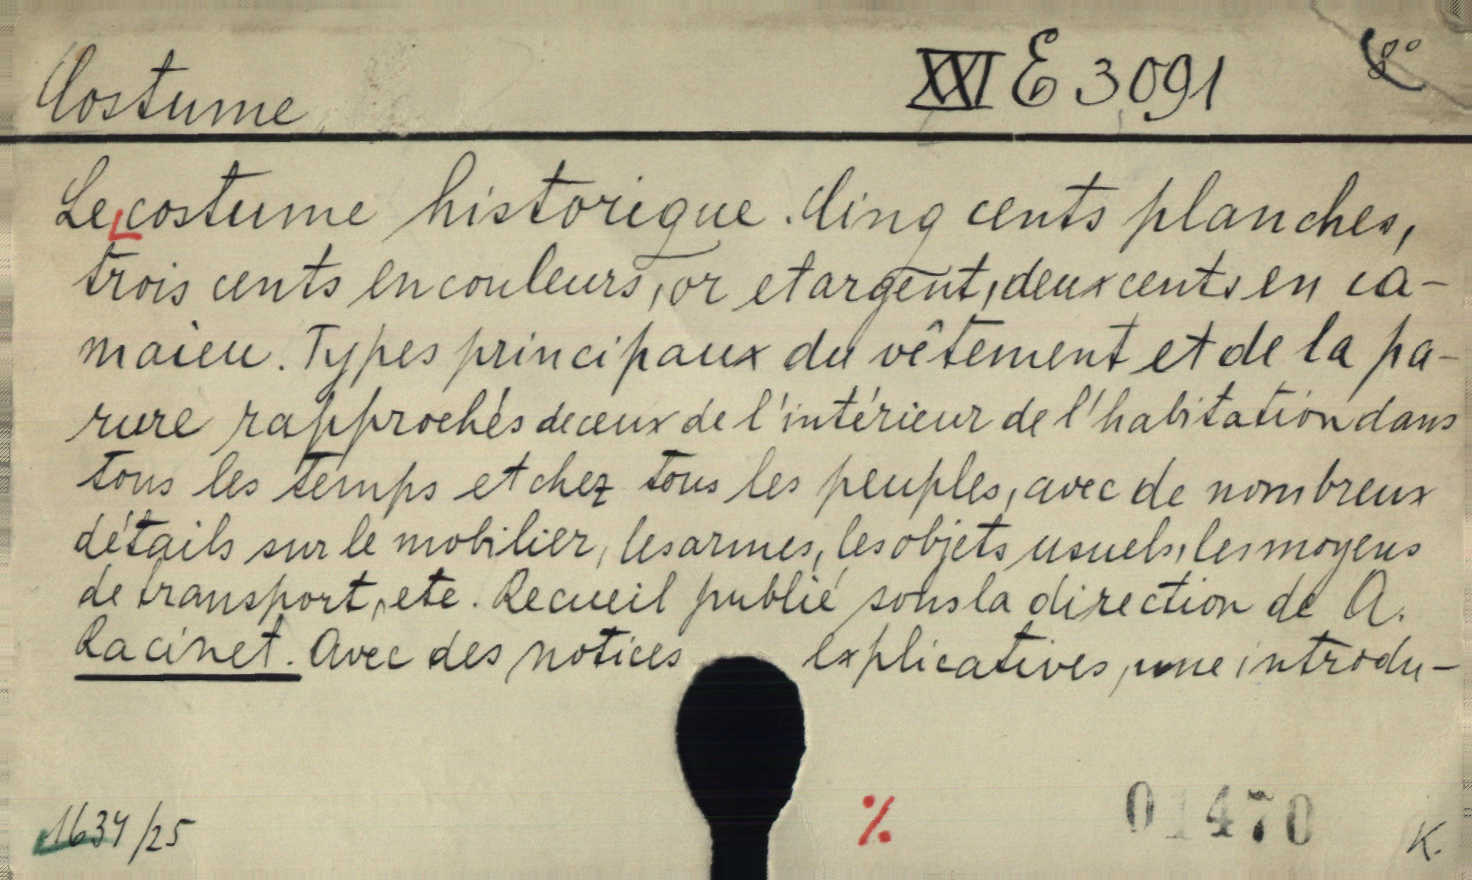 Costume XXI E 3091 8°
Le costume historique. Cinq cents planches,
trois cents en couleurs, or et argent, deux cents en ca-
maieu. Types principaux du vêtement et de la pa-
rure rapprochés de ceux de l'intérieur de l'habitation dans
tous les temps et chez tous les peuples, avec de nombreux
détails sur le mobilier, les armes, les objets usuels, les moyens
de transport, etc. Recueil publié sous la direction de A.
Racinet. Avec des notices explicatives, une introdu-
1634/25 % 01470 K.